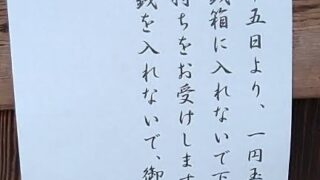 五日より、一円
銭箱に入れないで
持ちをお受けしま
銭を入れないで、御